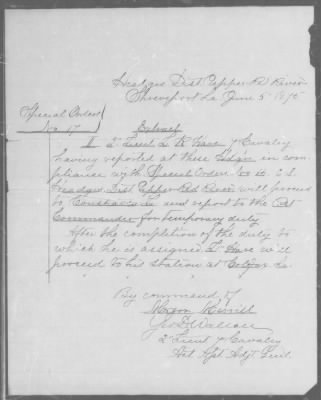 Headqrs Dist Upper Rd River
Shreveport La June 5 1875
Special Orders
No 17
Extract
II 2d Lieut L R Hare 7 Cavalry
having reported at these Hdqrs in com-
pliance with Special Orders C.S.
Headqrs Dist Upper Red River will proceed
to and report to the
Commander for temporary duty
After the completion of the duty to
which he is assigned Lt Hare will
proceed to his station at Colfax La.
By command of
Major Merrill
Geo D Wallace
2d Lieut 7 Cavalry
Act Asst Adjt Genl.